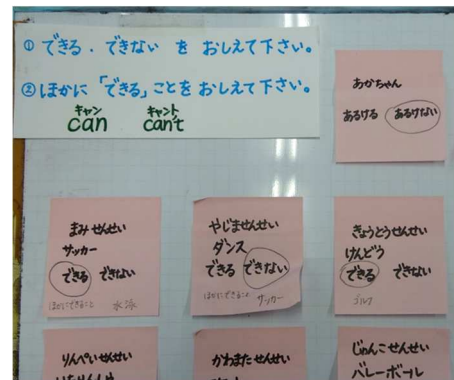 ① できる・できない を おしえて下さい。
② ほかに「できる」ことを おしえて下さい。
キャン キャント
can can't
あかちゃん
あるける あるけない
まみせんせい
サッカー
できる できない
ほかにできること 水泳
やじませんせい
ダンス
できる できない
ほかにできること サッカー
きょうとうせんせい
けんどう
できる できない
ゴルフ
りんぺいせんせい
かわまたせんせい
じゅんこせんせい
バレーボール